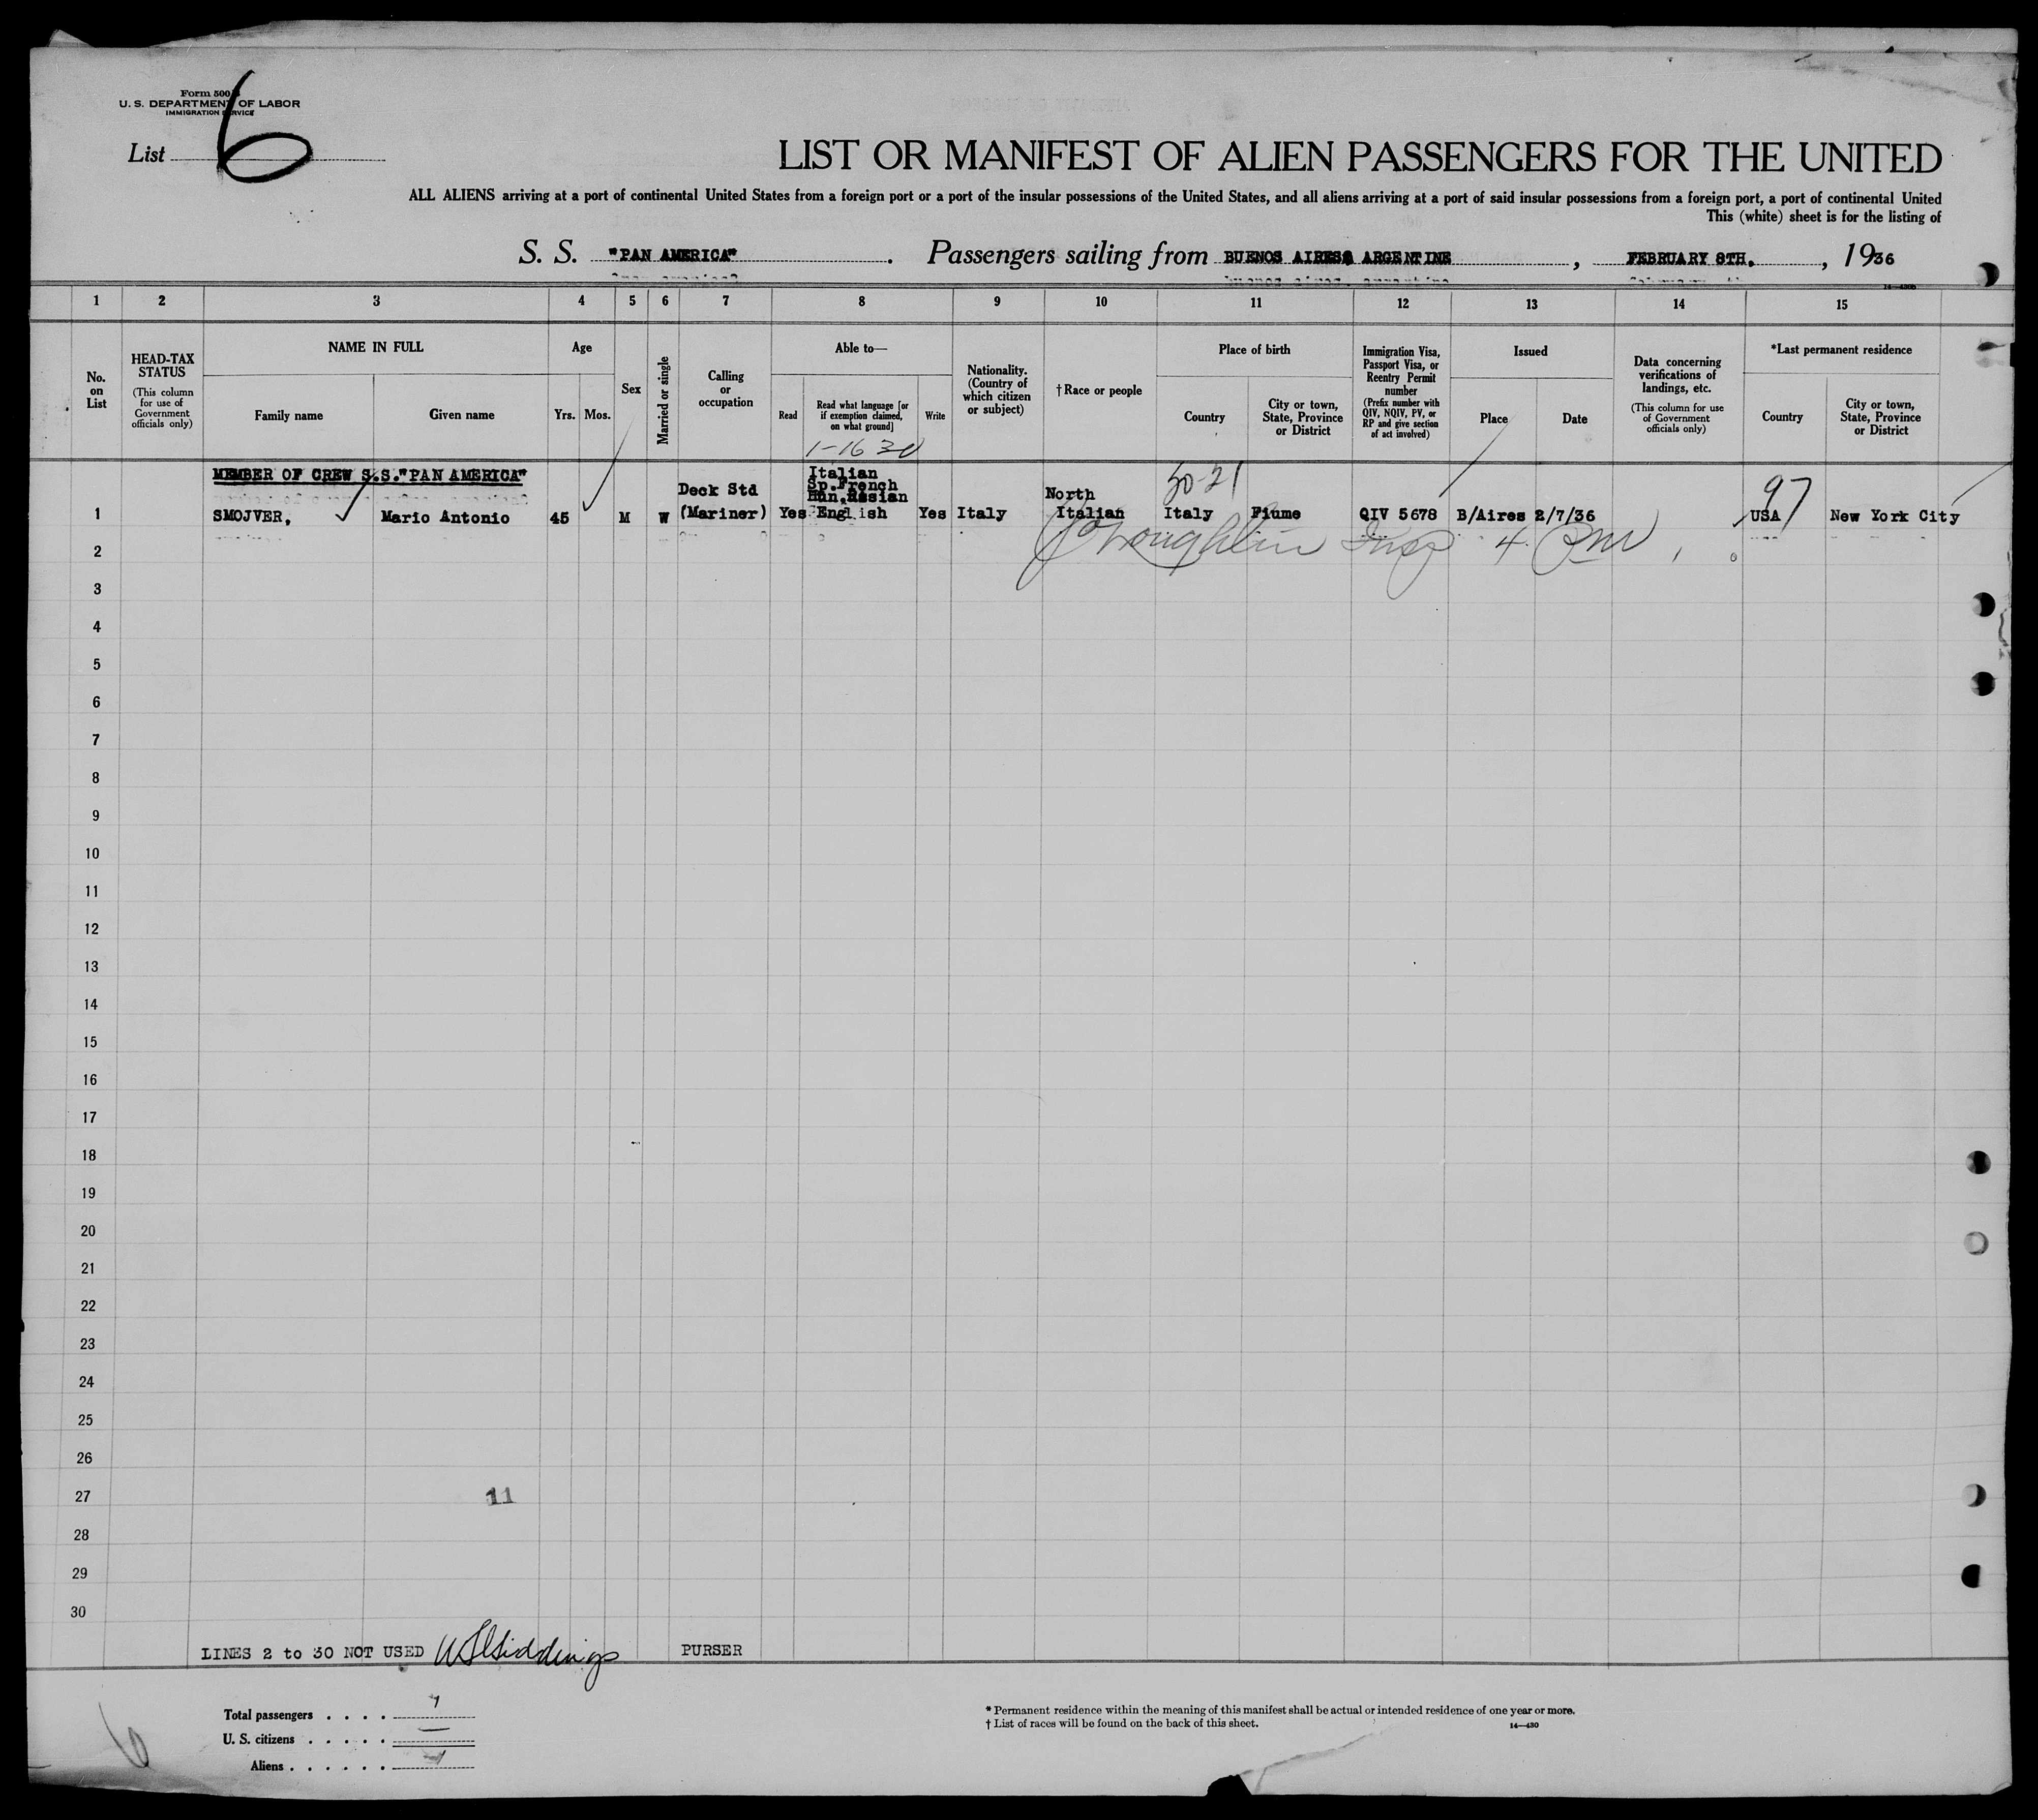 Form 500
U. S. DEPARTMENT OF LABOR
IMMIGRATION SERVICE
List 6
LIST OR MANIFEST OF ALIEN PASSENGERS FOR THE UNITED
ALL ALIENS arriving at a port of continental United States from a foreign port or a port of the insular possessions of the United States, and all aliens arriving at a port of said insular possessions from a foreign port, a port of continental United
This (white) sheet is for the listing of
S. S. "PAN AMERICA" . Passengers sailing from BUENOS AIRES ARGENTINE , FEBRUARY 8TH. , 1936
1 2 3 4 5 6 7 8 9 10 11 12 13 14 15
No. on List
HEAD-TAX STATUS
(This column for use of Government officials only)
NAME IN FULL
Family name
Given name
Age
Yrs. Mos.
Sex
Married or single
Calling or occupation
Able to—
Read
Read what language [or if exemption claimed, on what ground]
Write
Nationality. (Country of which citizen or subject)
† Race or people
Place of birth
Country
City or town, State, Province or District
Immigration Visa, Passport Visa, or Reentry Permit number
(Prefix number with QIV, NQIV, PV, or RP and give section of act involved)
Issued
Place
Date
Data concerning verifications of landings, etc.
(This column for use of Government officials only)
*Last permanent residence
Country
City or town, State, Province or District
1-16 30
MEMBER OF CREW S.S."PAN AMERICA"
50-21
97
1 SMOJVER, Mario Antonio 45 M W Deck Std (Mariner) Yes Italian Sp.French English Yes Italy North Italian Italy Fiume QIV 5678 B/Aires 2/7/36 USA New York City
2
3
4
5
6
7
8
9
10
11
12
13
14
15
16
17
18
19
20
21
22
23
24
25
26
27
11
28
29
30
LINES 2 to 30 NOT USED PURSER
Total passengers . . . . 1
U. S. citizens . . . . . —
Aliens . . . . . . 1
6
* Permanent residence within the meaning of this manifest shall be actual or intended residence of one year or more.
† List of races will be found on the back of this sheet.
14—430